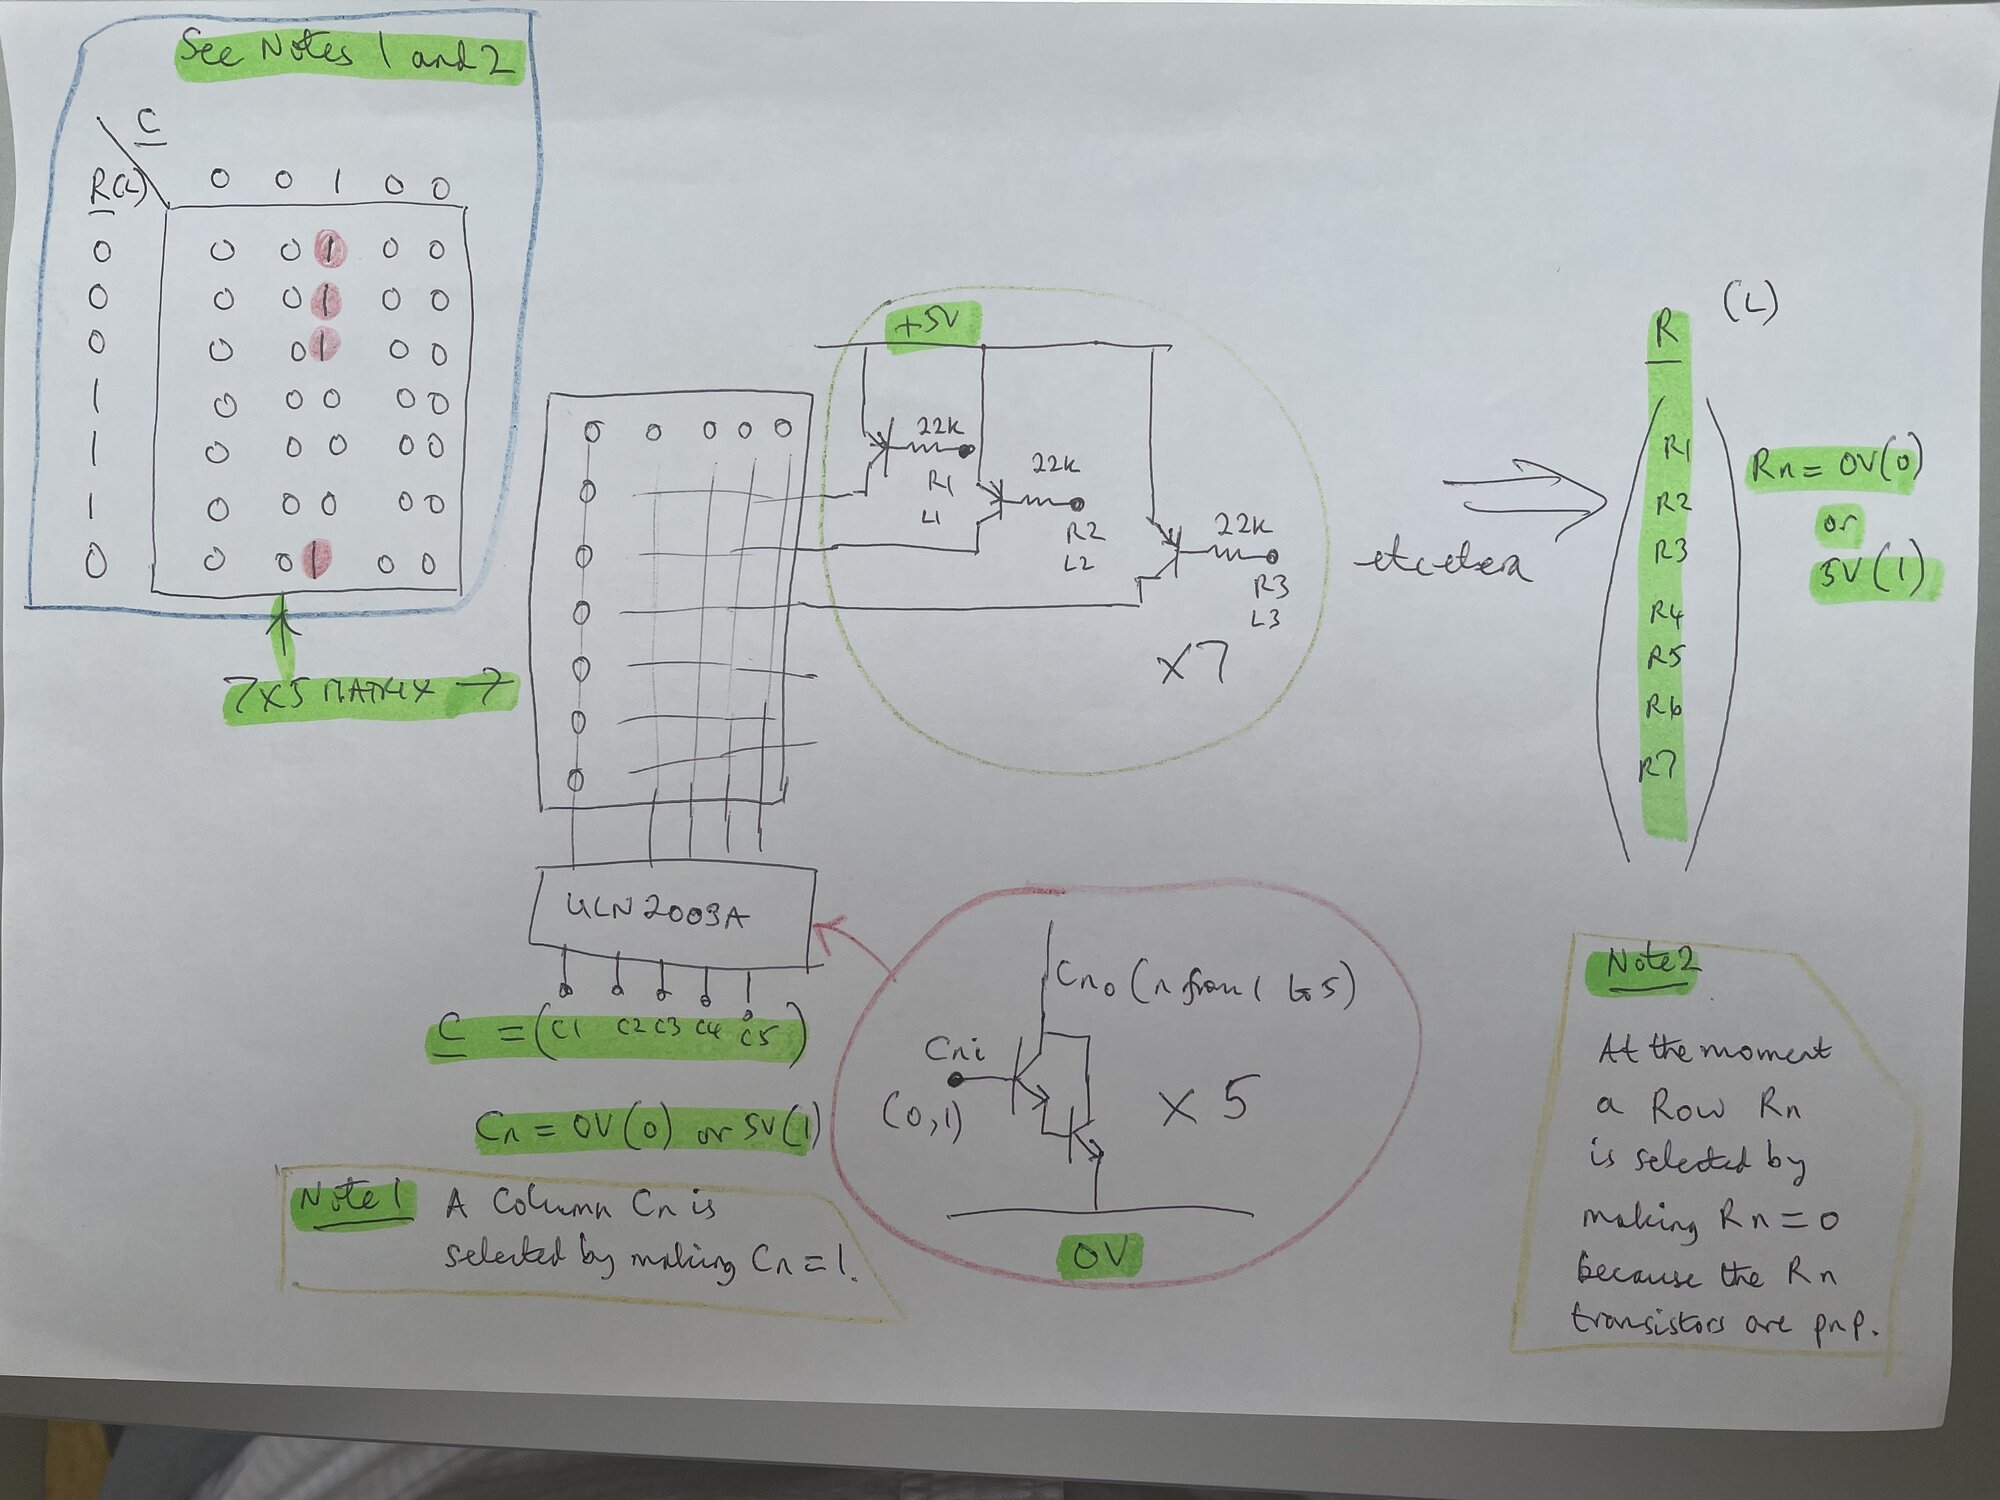 See Notes 1 and 2
C
R(L)
0 0 1 0 0
0 0 0 1 0 0
0 0 0 1 0 0
0 0 0 1 0 0
1 0 0 0 0 0
1 0 0 0 0 0
1 0 0 0 0 0
0 0 0 1 0 0
7X5 MATRIX →
+5V
22K
R1
L1
22K
R2
L2
22K
R3
L3
X7
etcetera
R (L)
R1
R2
R3
R4
R5
R6
R7
Rn = 0V(0)
or
5V(1)
ULN2003A
C = (C1 C2 C3 C4 C5)
Cn = 0V(0) or 5V(1)
Note 1 A Column Cn is
selected by making Cn = 1.
Cno (n from 1 to 5)
Cni
(0,1)
X 5
0V
Note 2
At the moment
a Row Rn
is selected by
making Rn = 0
because the Rn
transistors are pnp.